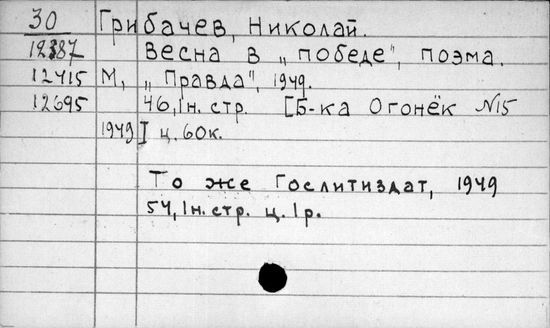 30 Грибачев, Николай.
12387 Весна в „победе", поэма.
12415 М, „Правда", 1949.
12695 46, 1н. стр. [Б-ка Огонёк №15
1949] ц. 60к.
То же Гослитиздат, 1949
54, 1н. стр. ц. 1р.